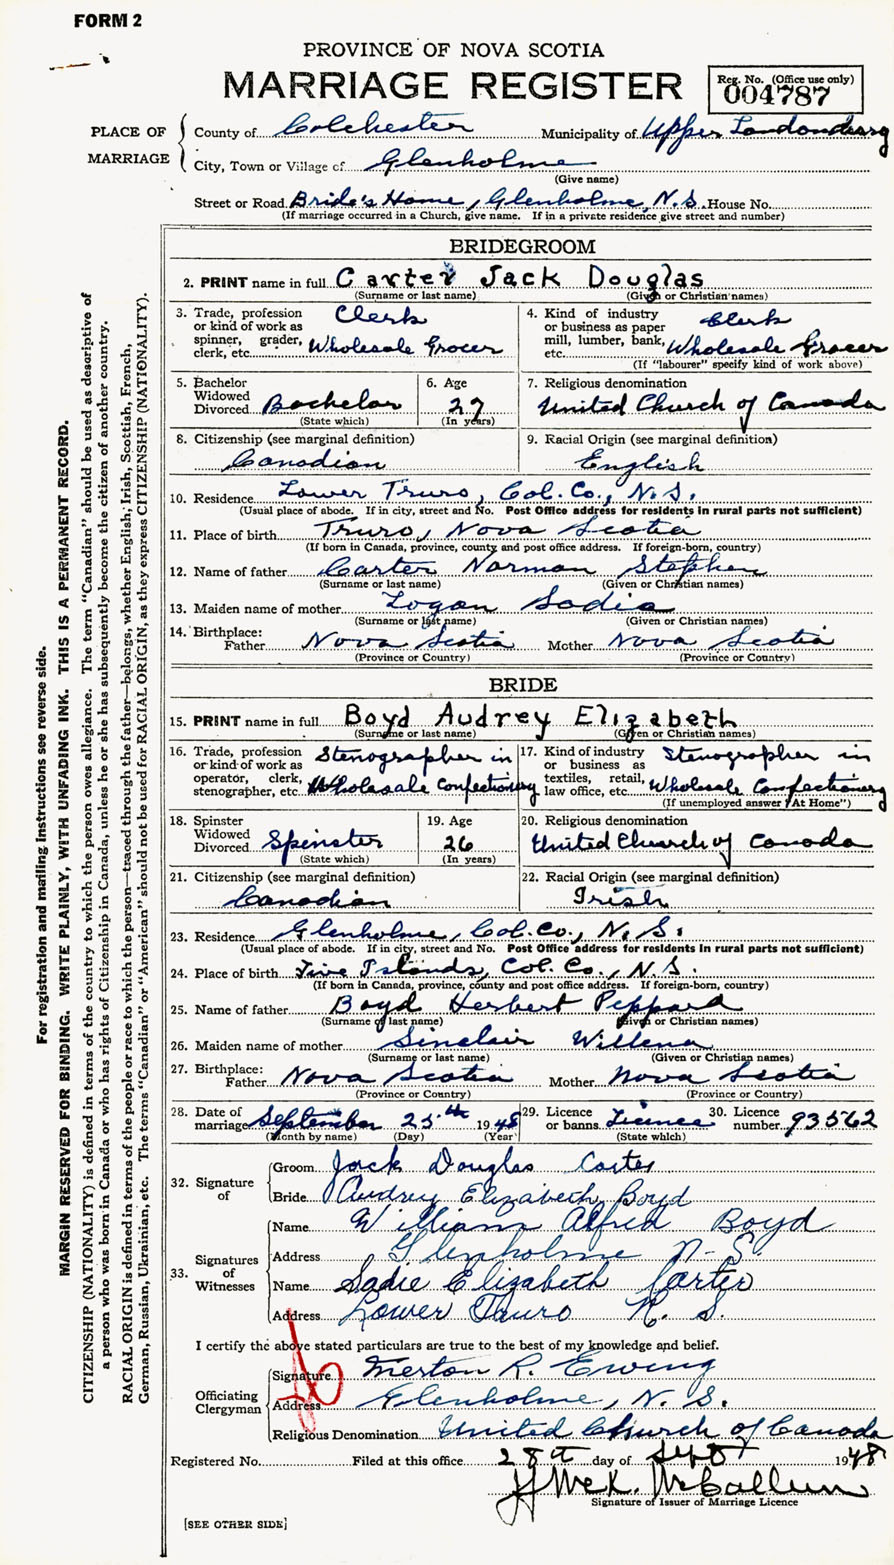 FORM 2
PROVINCE OF NOVA SCOTIA
MARRIAGE REGISTER
Reg. No. (Office use only)
004787
PLACE OF MARRIAGE
County of Colchester Municipality of Upper Londonderry
City, Town or Village of Glenholme
(Give name)
Street or Road Bride's Home, Glenholme, N.S. House No.
(If marriage occurred in a Church, give name. If in a private residence give street and number)
BRIDEGROOM
2. PRINT name in full Carter Jack Douglas
(Surname or last name) (Given or Christian names)
3. Trade, profession or kind of work as spinner, grader, clerk, etc. Clerk Wholesale Grocer
4. Kind of industry or business as paper mill, lumber, bank, etc. Clerk Wholesale Grocer
(If "labourer" specify kind of work above)
5. Bachelor Widowed Divorced Bachelor
(State which)
6. Age 27
(In years)
7. Religious denomination
United Church of Canada
8. Citizenship (see marginal definition)
Canadian
9. Racial Origin (see marginal definition)
English
10. Residence Lower Truro, Col. Co., N.S.
(Usual place of abode. If in city, street and No. Post Office address for residents in rural parts not sufficient)
11. Place of birth Truro, Nova Scotia
(If born in Canada, province, county and post office address. If foreign-born, country)
12. Name of father Carter Norman Stephen
(Surname or last name) (Given or Christian names)
13. Maiden name of mother Logan Sadie
(Surname or last name) (Given or Christian names)
14. Birthplace: Father Nova Scotia Mother Nova Scotia
(Province or Country) (Province or Country)
BRIDE
15. PRINT name in full Boyd Audrey Elizabeth
(Surname or last name) (Given or Christian names)
16. Trade, profession or kind of work as operator, clerk, stenographer, etc. Stenographer in Wholesale Confectionery
17. Kind of industry or business as textiles, retail, law office, etc. Stenographer in Wholesale Confectionery
(If unemployed answer "At Home")
18. Spinster Widowed Divorced Spinster
(State which)
19. Age 26
(In years)
20. Religious denomination
United Church of Canada
21. Citizenship (see marginal definition)
Canadian
22. Racial Origin (see marginal definition)
Irish
23. Residence Glenholme, Col. Co., N.S.
(Usual place of abode. If in city, street and No. Post Office address for residents in rural parts not sufficient)
24. Place of birth Five Islands, Col. Co., N.S.
(If born in Canada, province, county and post office address. If foreign-born, country)
25. Name of father Boyd Herbert Peppard
(Surname or last name) (Given or Christian names)
26. Maiden name of mother Sinclair Willena
(Surname or last name) (Given or Christian names)
27. Birthplace: Father Nova Scotia Mother Nova Scotia
(Province or Country) (Province or Country)
28. Date of marriage September 25th 1948
(Month by name) (Day) (Year)
29. Licence or banns Licence
(State which)
30. Licence number 93562
32. Signature of
Groom Jack Douglas Carter
Bride Audrey Elizabeth Boyd
33. Signatures of Witnesses
Name William Alfred Boyd
Address Glenholme N.S.
Name Sadie Elizabeth Carter
Address Lower Truro N.S.
I certify the above stated particulars are true to the best of my knowledge and belief.
Officiating Clergyman
Signature Merton R. Ewing
Address Glenholme, N.S.
Religious Denomination United Church of Canada
Registered No. Filed at this office 28th day of Sept 1948
McK. McCallum
Signature of Issuer of Marriage Licence
[SEE OTHER SIDE]
For registration and mailing instructions see reverse side.
MARGIN RESERVED FOR BINDING. WRITE PLAINLY, WITH UNFADING INK. THIS IS A PERMANENT RECORD.
CITIZENSHIP (NATIONALITY) is defined in terms of the country to which the person owes allegiance. The term "Canadian" should be used as descriptive of
a person who was born in Canada or who has rights of Citizenship in Canada, unless he or she has subsequently become the citizen of another country.
RACIAL ORIGIN is defined in terms of the people or race to which the person—traced through the father—belongs, whether English, Irish, Scottish, French,
German, Russian, Ukrainian, etc. The terms "Canadian" or "American" should not be used for RACIAL ORIGIN, as they express CITIZENSHIP (NATIONALITY).